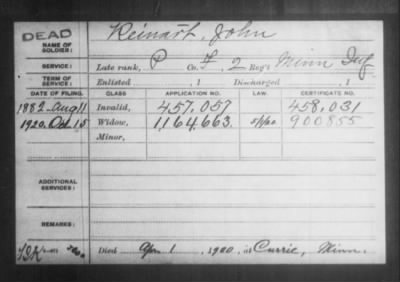 DEAD
NAME OF SOLDIER: Reinart, John
SERVICE: Late rank, P Co. F, 2 Reg't Minn Inf
TERM OF SERVICE: Enlisted , 1 Discharged , 1
DATE OF FILING. CLASS APPLICATION NO. LAW. CERTIFICATE NO.
1882 Aug 11 Invalid, 457,057 458,031
1920, Oct 15 Widow, 1164,663. 5/1/20 900855
Minor,
ADDITIONAL SERVICES:
REMARKS:
Died Apr 1, 1920, at Currie, Minn.